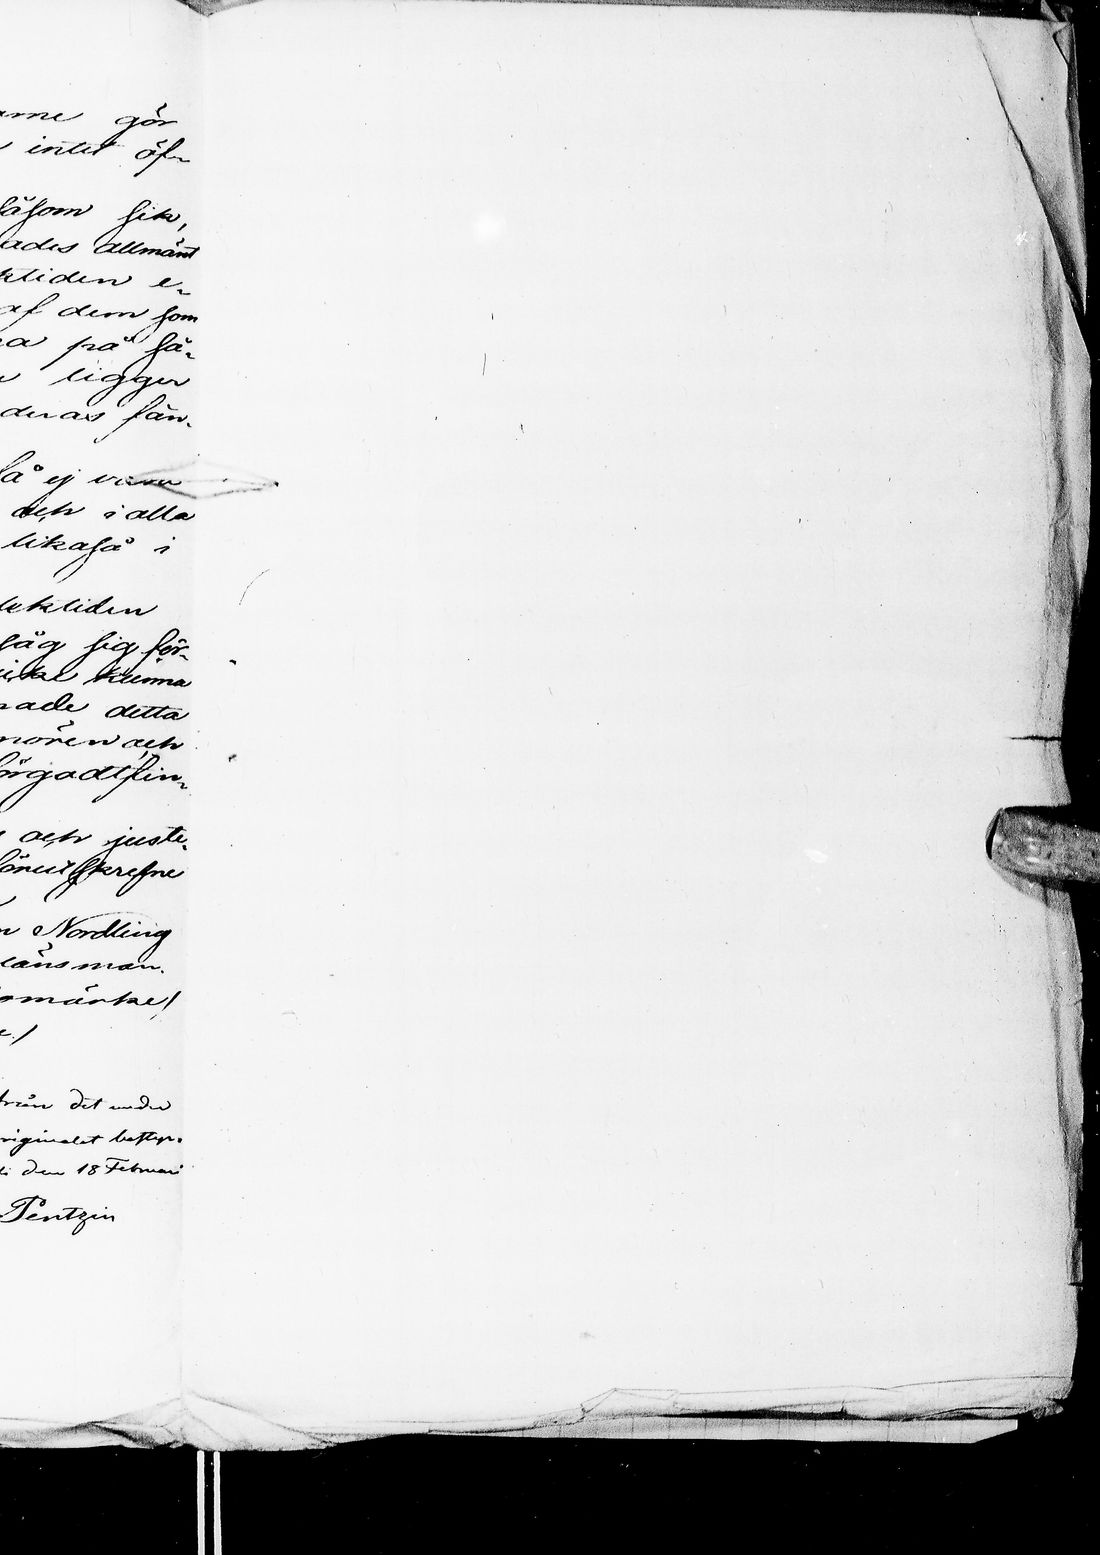 gör
intet öf-
såsom sik,
ades allmänt
ktiden e-
af dem som
på så-
ligger
deras fån-
så ej vara
och i alla
likaså i
lektiden
såg sig för-
icke kunna
rade detta
mören och
lörgadt fin-
och juste-
skrefne
Nordling
länsman.
omärke/
e./
från det under
riginalet bestyr-
den 18 Februari
Pentzin